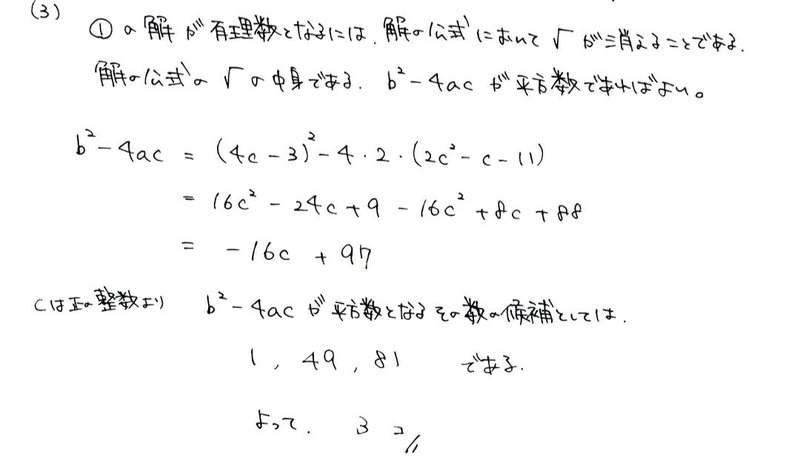 (3)
① の解が有理数となるには、解の公式において√が消えることである.
解の公式の√の中身である. b²-4ac が平方数であればよい。
b²-4ac = (4c-3)²-4・2・(2c²-c-11)
= 16c²-24c+9-16c²+8c+88
= -16c+97
cは正の整数より b²-4ac が平方数となるその数の候補としては.
1, 49, 81 である.
よって. 3コ//